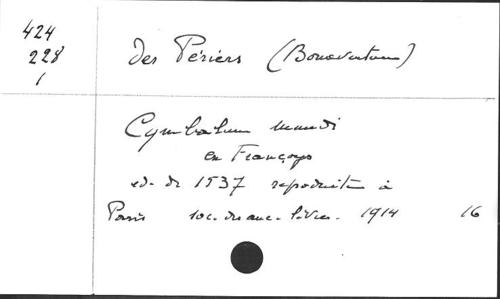 424
228
1
des Périers (Bonaventure)
Cymbalum mundi
en Françoys
ed. de 1537 reproduite à
Paris soc. des anc. livres. 1914 16